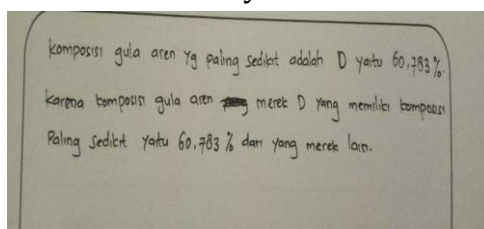 komposisi gula aren yg paling sedikit adalah D yaitu 60,783 %.
karena komposisi gula aren merek D yang memiliki komposisi
Paling sedikit yaitu 60,783 % dari yang merek lain.